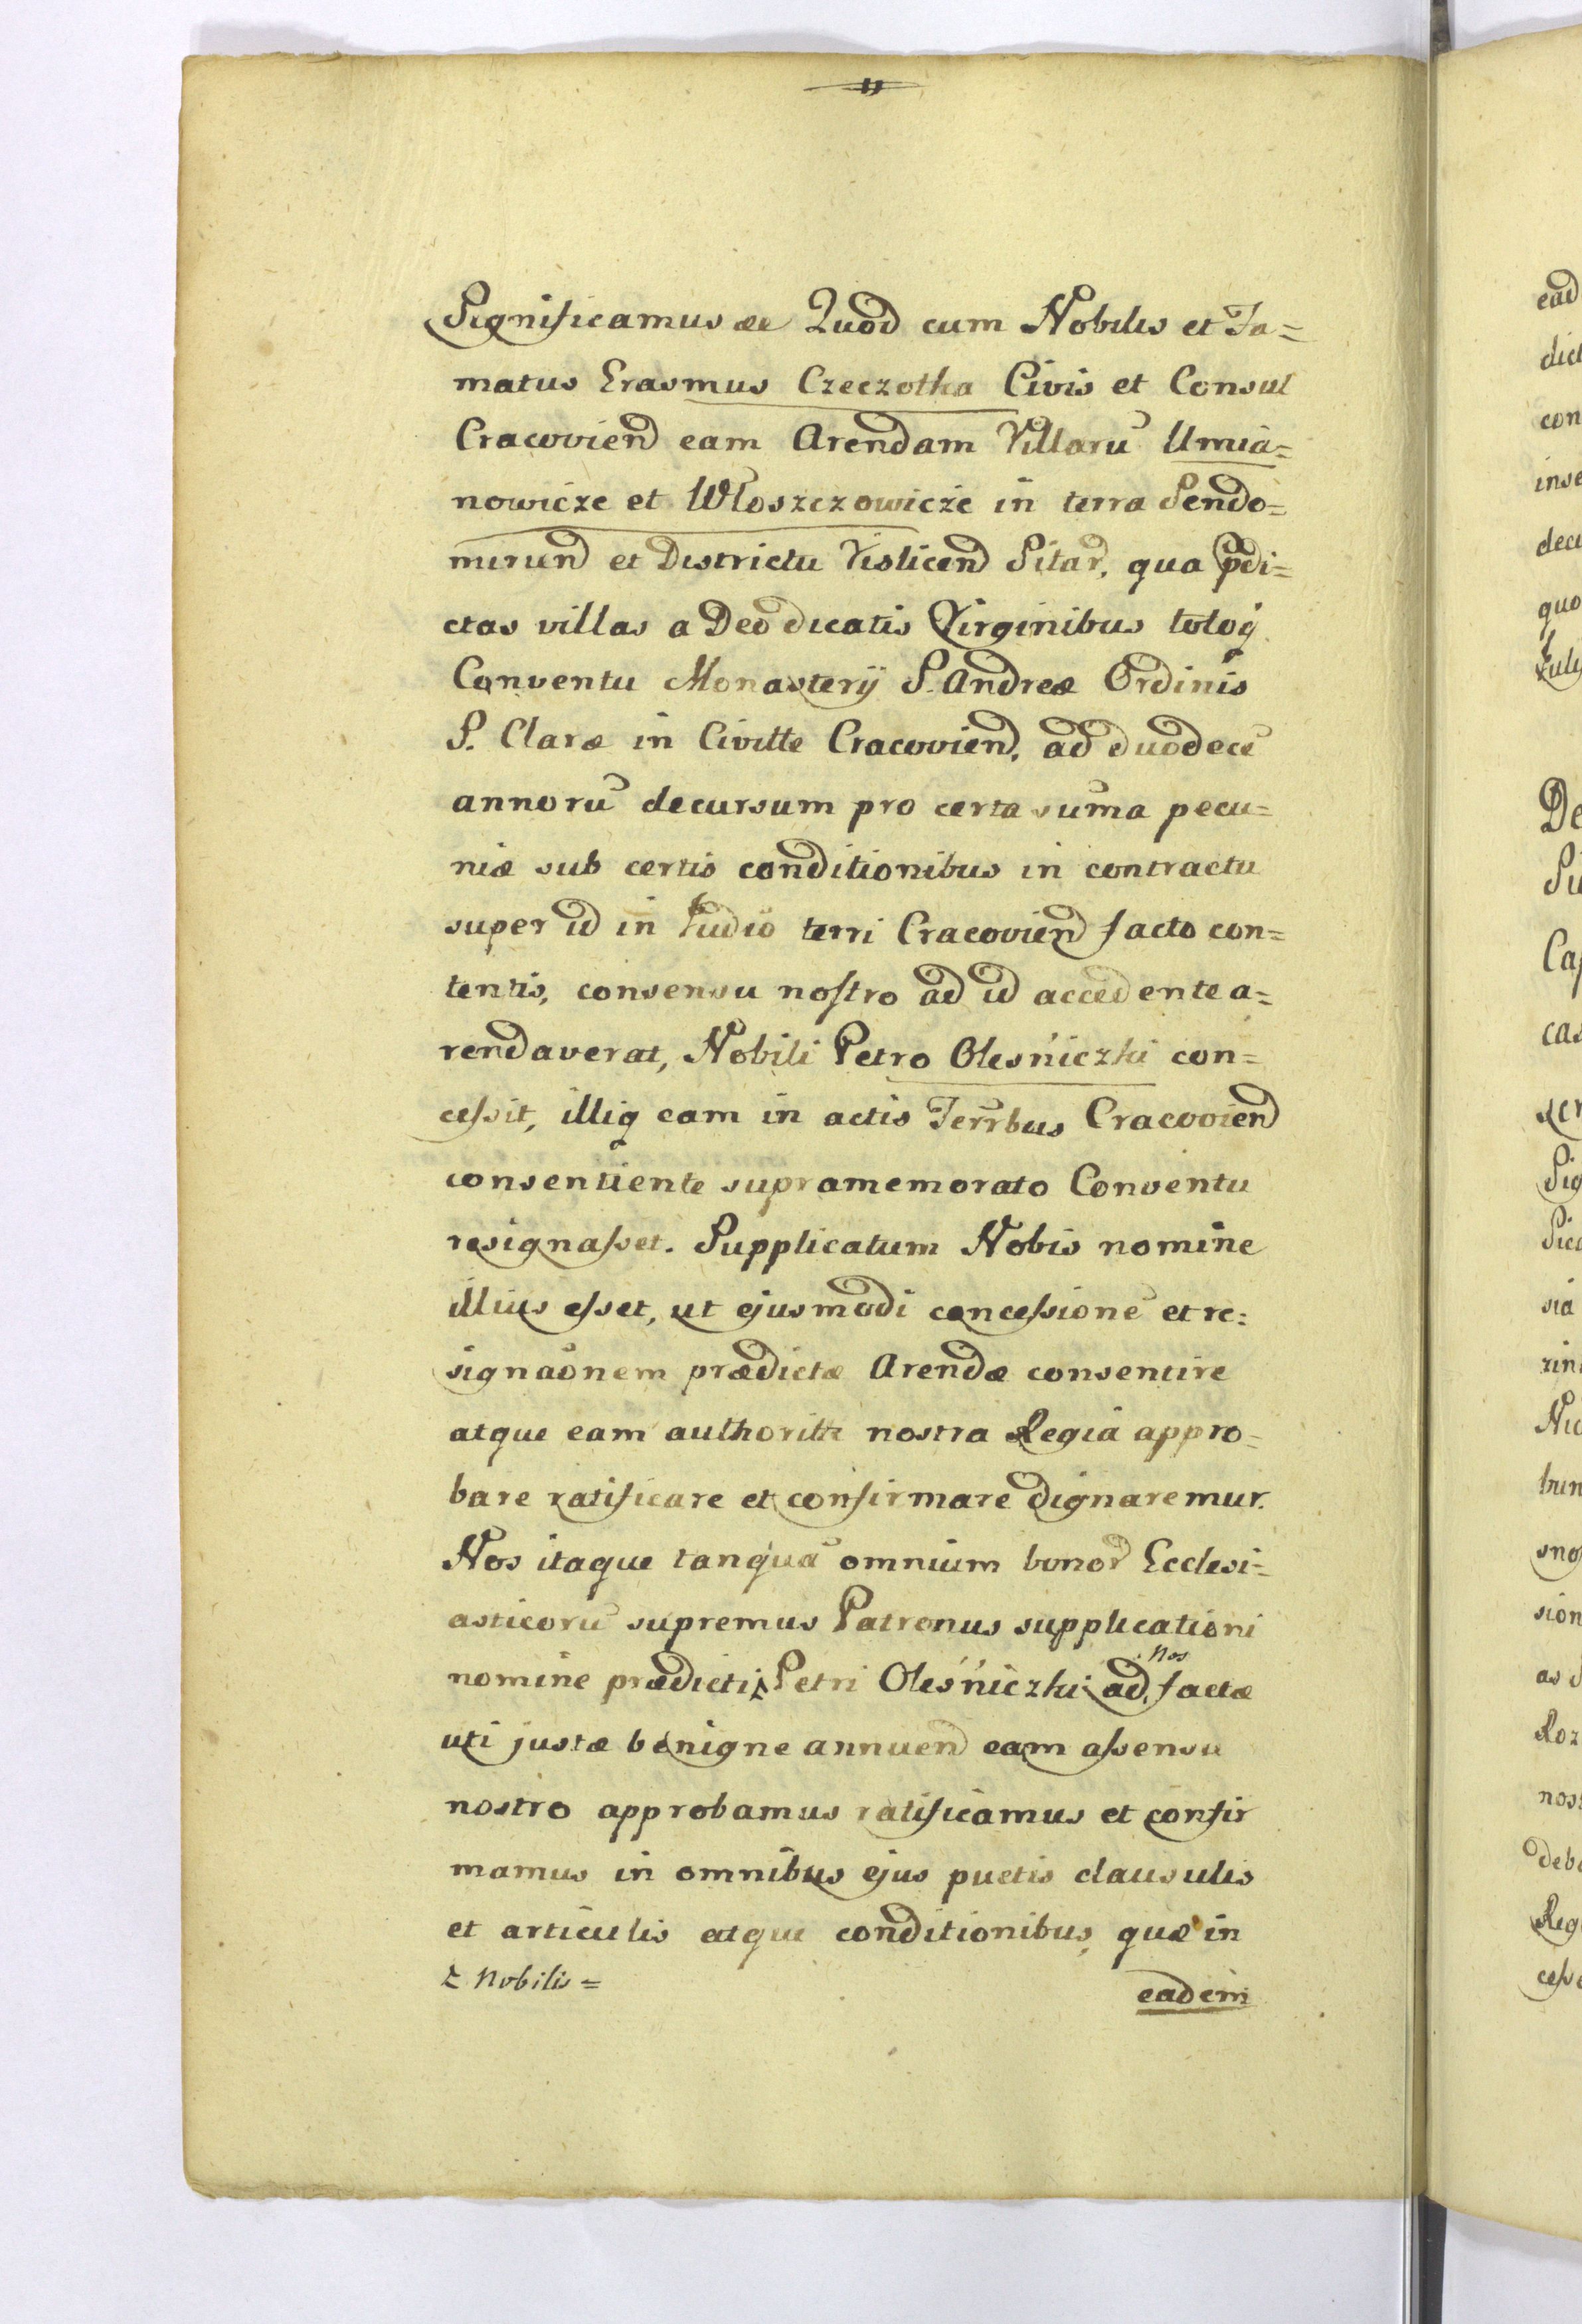 Significamus &c Quod cum Nobilis et Fa=
matus Erasmus Czeczotka Civis et Consul
Cracovien eam Arendam Villarū Umia=
nowicze et Włoszczowicze in terra Sendo=
mirien et Districtu Vislicen Sitar, qua pdi=
ctas villas a Deo dicatis Virginibus totoq
Conventu Monasterÿ S. Andreæ Ordinis
S. Claræ in Civitte Cracovien, ad duodecē
annorū decursum pro certa suma pecu=
niæ sub certis conditionibus in contractu
super id in Judio terri Cracovien facto con=
tentis, consensu nostro ad id accedente a=
rendaverat, Nobili Petro Oleśniczki con=
cessit, illiq eam in actis Terrbus Cracovien
consentiente supramemorato Conventu
resignasset. Supplicatum Nobis nomine
illius esset, ut ejusmodi concessionē et re=
signaōnem prædictæ Arendæ consentire
atque eam authoritte nostra Regia appro=
bare ratificare et confirmare dignaremur.
Nos itaque tanquā omnium bonor Ecclesi=
asticorū supremus Patronus supplicationi
nomine prædicti Petri Oleśniczki ad nos factæ
uti justæ benigne annuen eam assensu
nostro approbamus ratificamus et confir
mamus in omnibus ejus puctis clausulis
et articulis atque conditionibus quæ in
Nobilis =
eadem